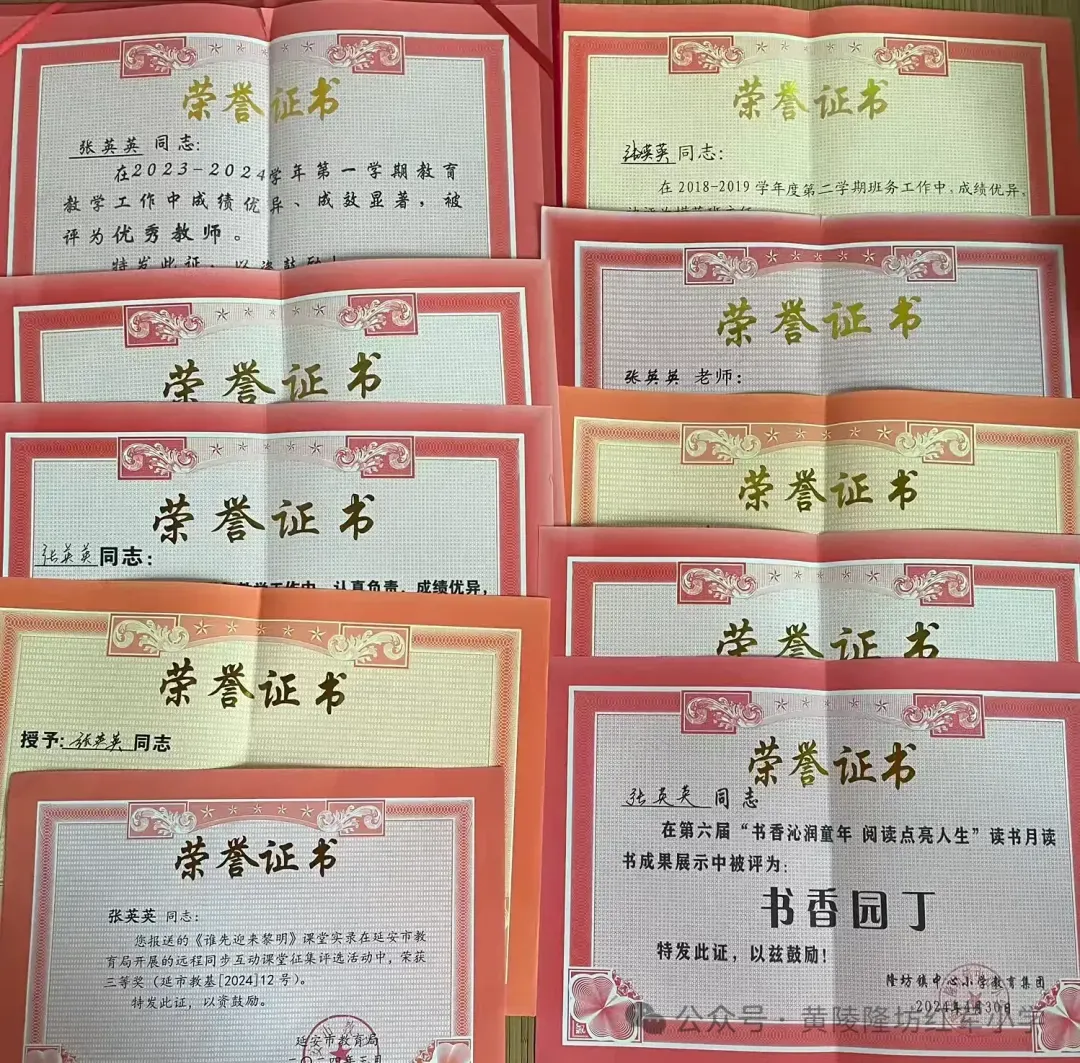 荣誉证书
张英英 同志：
在2023-2024学年第一学期教育
教学工作中成绩优异、成效显著，被
评为优秀教师。
特发此证，以资鼓励！
荣誉证书
荣誉证书
张英英同志：
教学工作中，认真负责，成绩优异，
荣誉证书
授予：张英英 同志
荣誉证书
张英英 同志：
您报送的《谁先迎来黎明》课堂实录在延安市教
育局开展的远程同步互动课堂征集评选活动中，荣获
三等奖（延市教基[2024]12号）。
特发此证，以资鼓励。
延安市教育局
二〇二四年三月
荣誉证书
张英英 同志：
在 2018-2019 学年度第二学期班务工作中，成绩优异，
荣誉证书
张英英 老师：
荣誉证书
荣誉证书
荣誉证书
张英英 同志
在第六届“书香沁润童年 阅读点亮人生”读书月读
书成果展示中被评为：
书香园丁
特发此证，以兹鼓励！
隆坊镇中心小学教育集团
2024年4月30日
公众号·黄陵隆坊红军小学